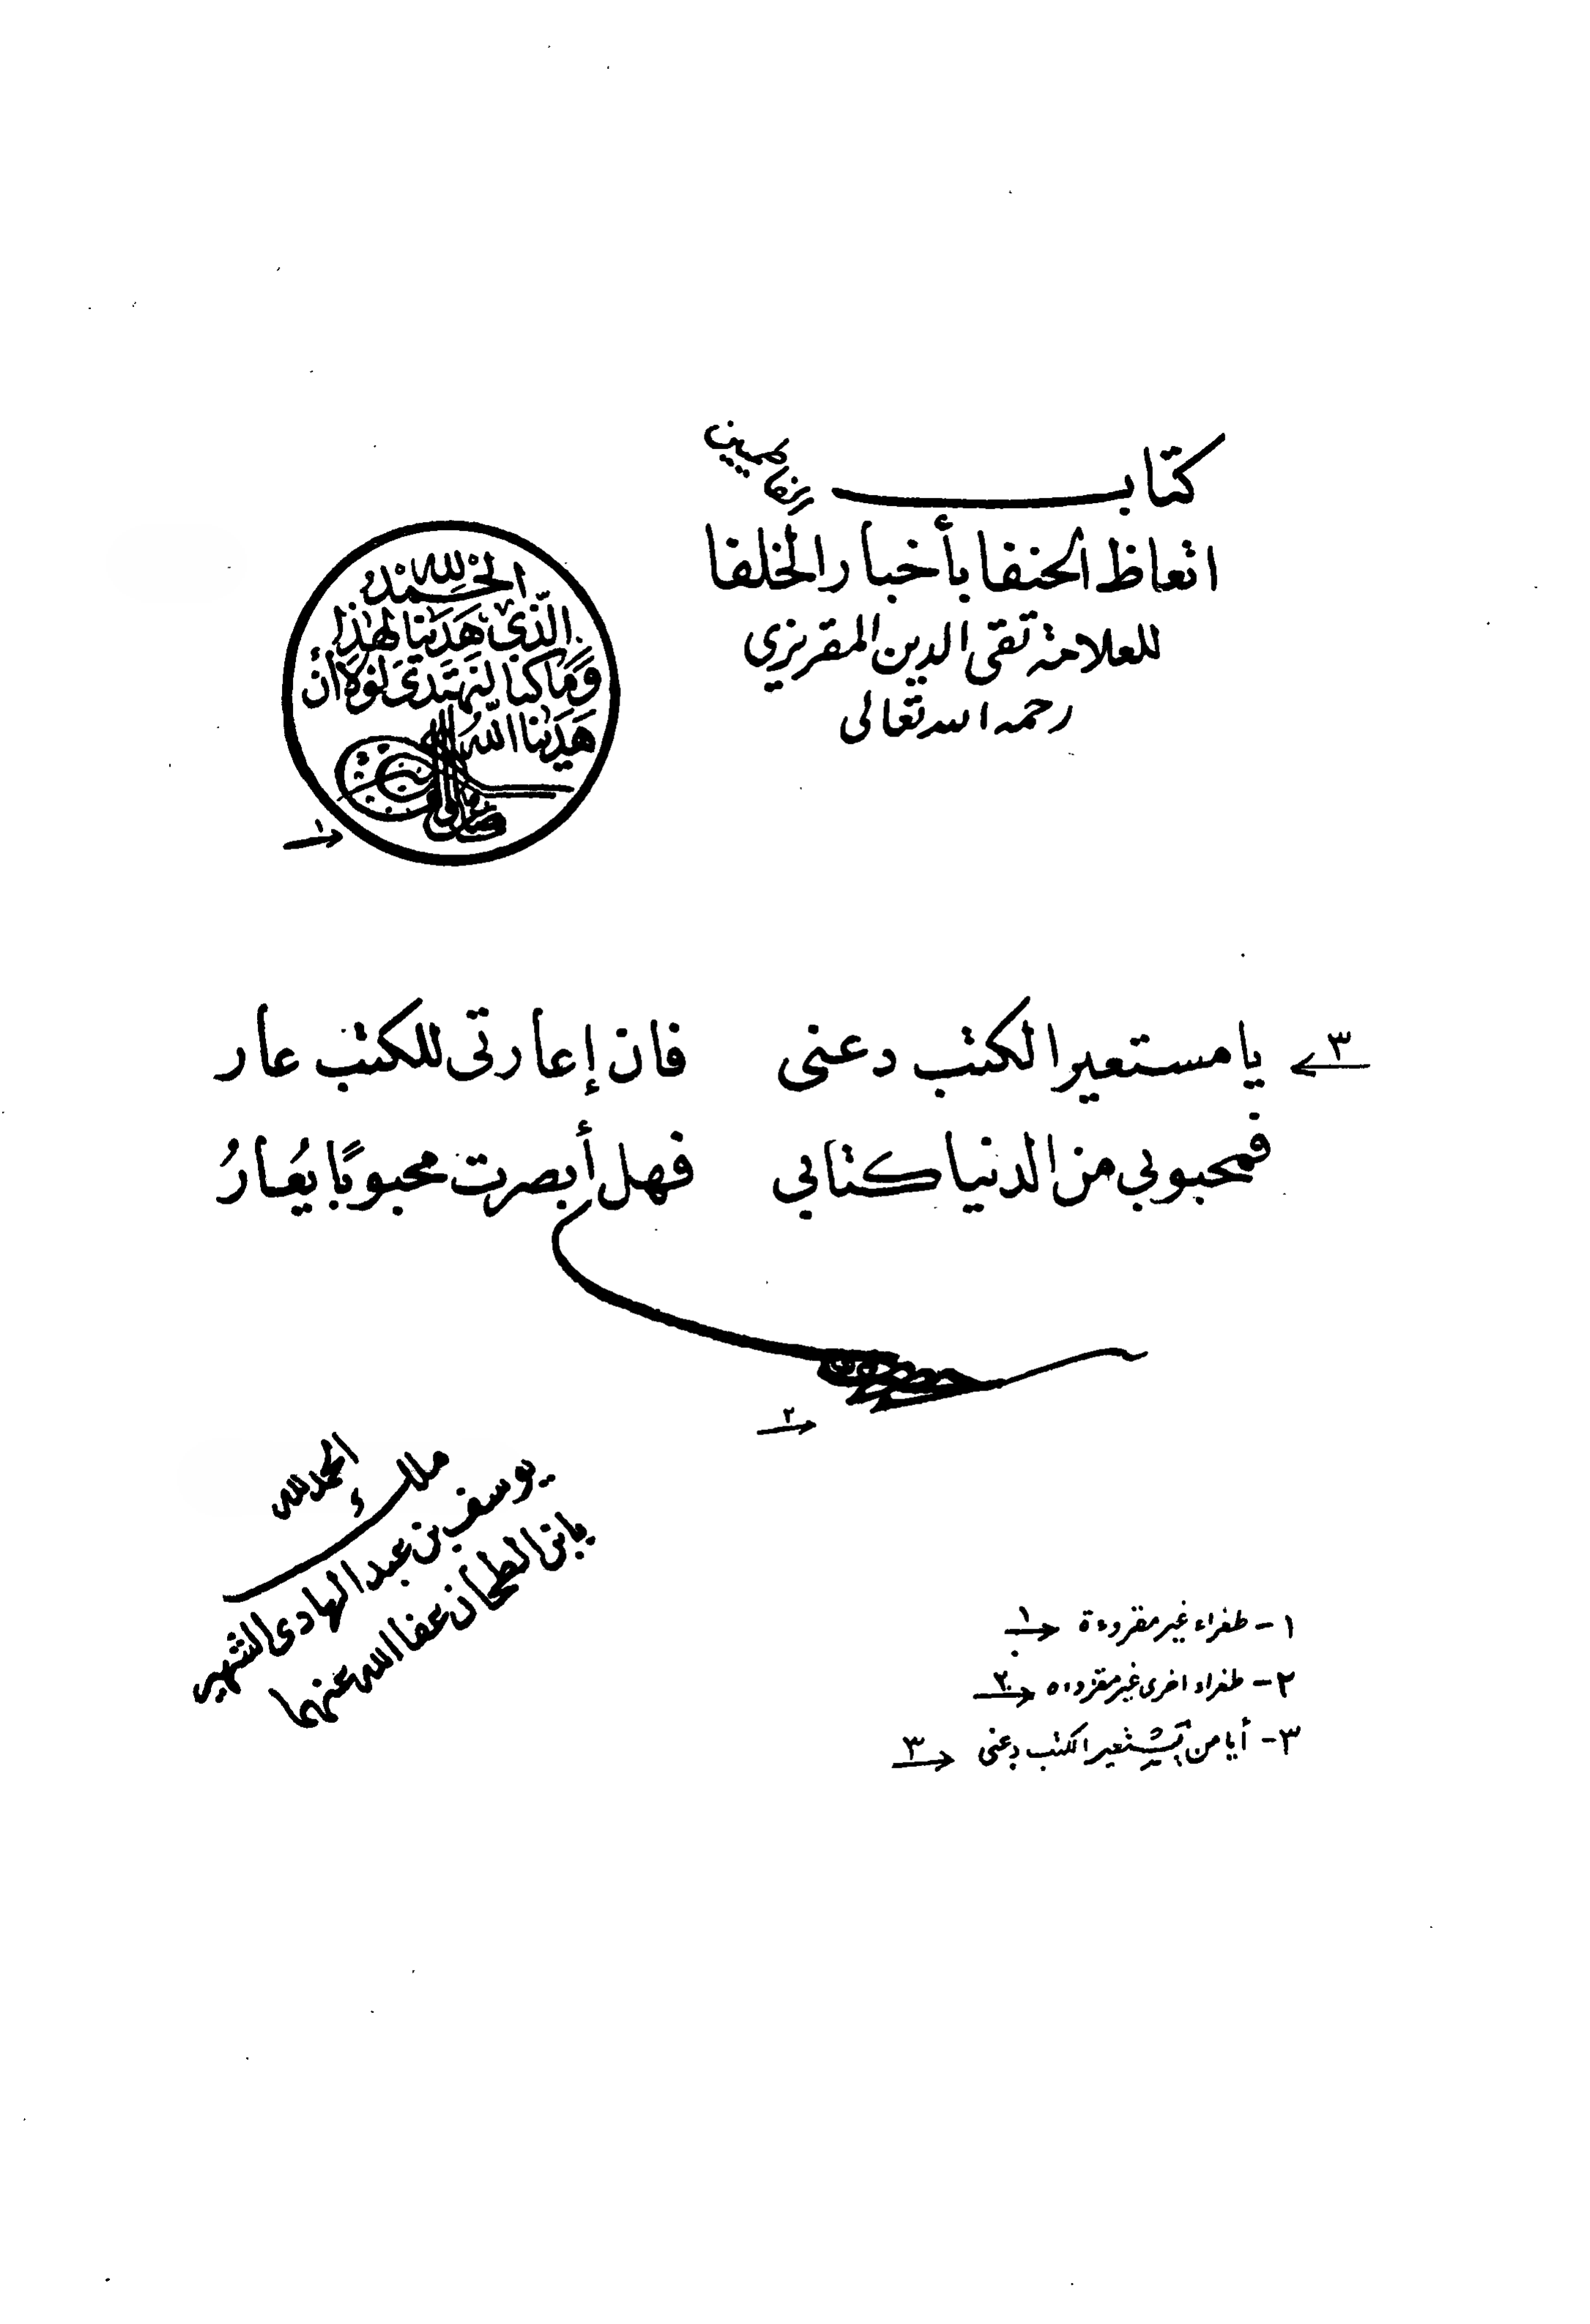 كتاب
اتعاظ الحنفا بأخبار الخلفا
للعلامة تقى الدين المقريزي
رحمه الله تعالى
الحمد لله
الذى هدينا لهذا
وما كنا لنهتدى لولا أن
هدينا الله
١
٣ يا مستعير الكتب دعنى فان إعارتى للكتب عار
فمحبوبي من الدنيا كتابي فهل أبصرت محبوبًا يُعارُ
٢
الحمد لله
ملك
يوسف بن عبد الهادى الشهير
بابن الطحان عفا الله عنهما
١ - طغراء غير مقروءة ١
٢ - طغراء اخرى غير مقروءه ٢
٣ - أيا من يستعير الكتب دعنى ٣